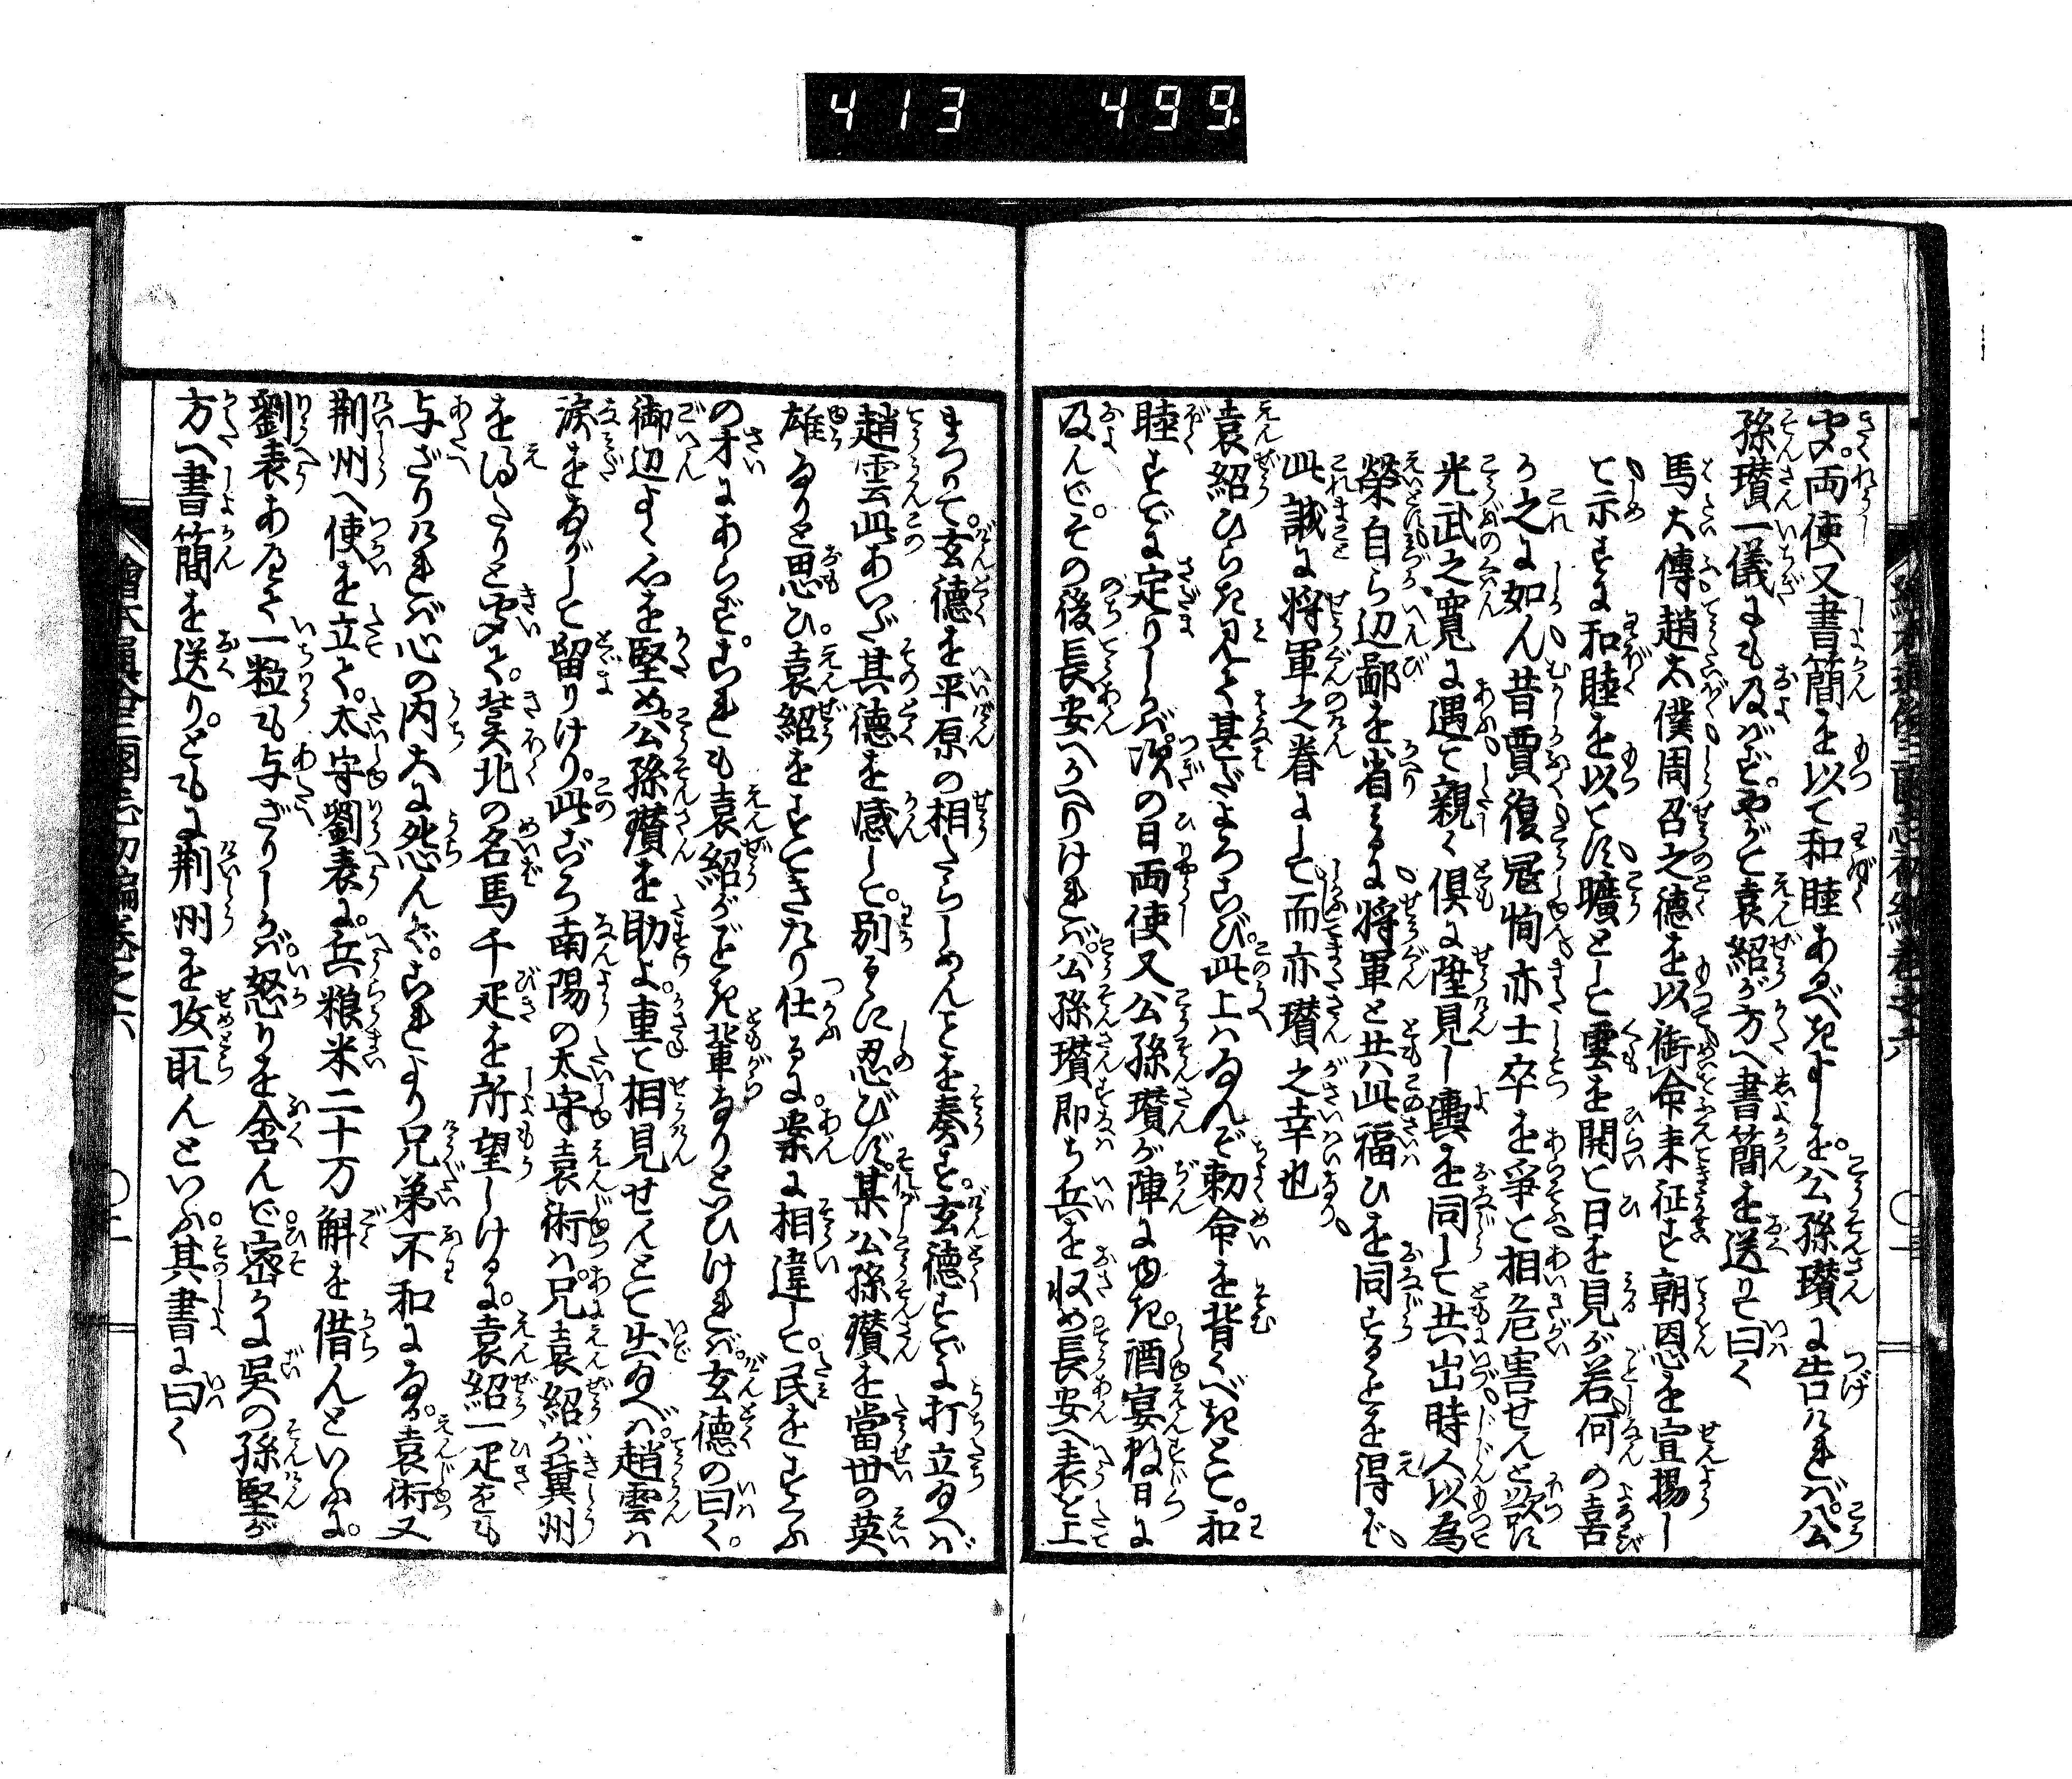 413 499.
繪本通俗三國志初編卷之六
聞。両使又書簡を以て和睦あるべきよしを。公孫瓚に告ければ。公
孫瓚一儀にも及ばず。やがて袁紹が方へ書簡を送りて曰く
馬太傅趙太僕周召之徳を以銜命来征す朝恩を宣揚し
て示すに和睦を以とす曠として雲を開と日を見が若何の喜
か之に如ん昔賈復冦恂亦士卒を爭と相危害せんと欲す
光武之寛に遇て親く倶に陛見し輿を同して共出時人以為
榮自ら辺鄙を省るに将軍と共此福ひを同するとを得ば
此誠に将軍之眷にして而亦瓚之幸也
袁紹ひらき見て甚だよろこび。此上はなんぞ勅命を背くべきとて。和
睦すでに定りしかば。次の日両使又公孫瓚が陣にゆき。酒宴数日に
及んで。その後長安へかへりければ。公孫瓚即ち兵を収め長安へ表を上
まつりて。玄徳を平原の相たらしめんとを奏す。玄徳すでに打立なへば
趙雲此あいだ其徳を感じて。別るに忍びず。某公孫瓚を當世の英
雄なりと思ひ。袁紹をすてきたり仕るに。案に相違して。民をすくふ
の才にあらず。これも袁紹がごとき輩なりといひければ。玄徳の曰く。
御辺よく心を堅め。公孫瓚を助よ。重て相見せんとて出なへば。趙雲は
涙をながして留りけり。此ごろ南陽の太守袁術は。兄袁紹が冀州
を得たりと聞て。冀北の名馬千疋を所望しけるに。袁紹一疋をも
与ざりければ心の内大に怨んで。これより兄弟不和になる。袁術又
荆州へ使を立て。太守劉表に。兵粮米二十万斛を借んといふに。
劉表あへて一粒も与ざりしかば。怒りを含んで。密かに呉の孫堅が
方へ書簡を送り。ともに荆州を攻取んといふ。其書に曰く
繪本通俗三國志初編卷之六